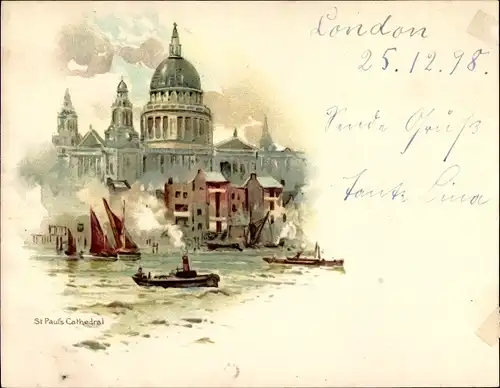 London
25.12.98.
Sende Gruß
Tante Lina
St Paul's Cathedral